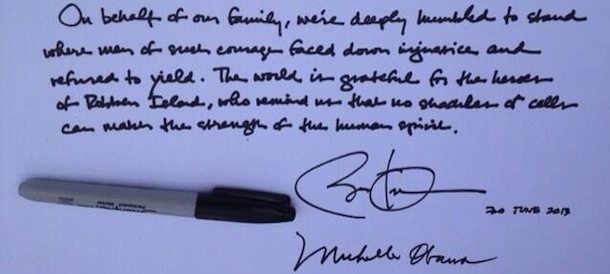 On behalf of our family, we're deeply humbled to stand
where men of such courage faced down injustice and
refused to yield. The world is grateful for the heroes
of Robben Island, who remind us that no shackles or cells
can match the strength of the human spirit.
30 JUNE 2013
Michelle Obama